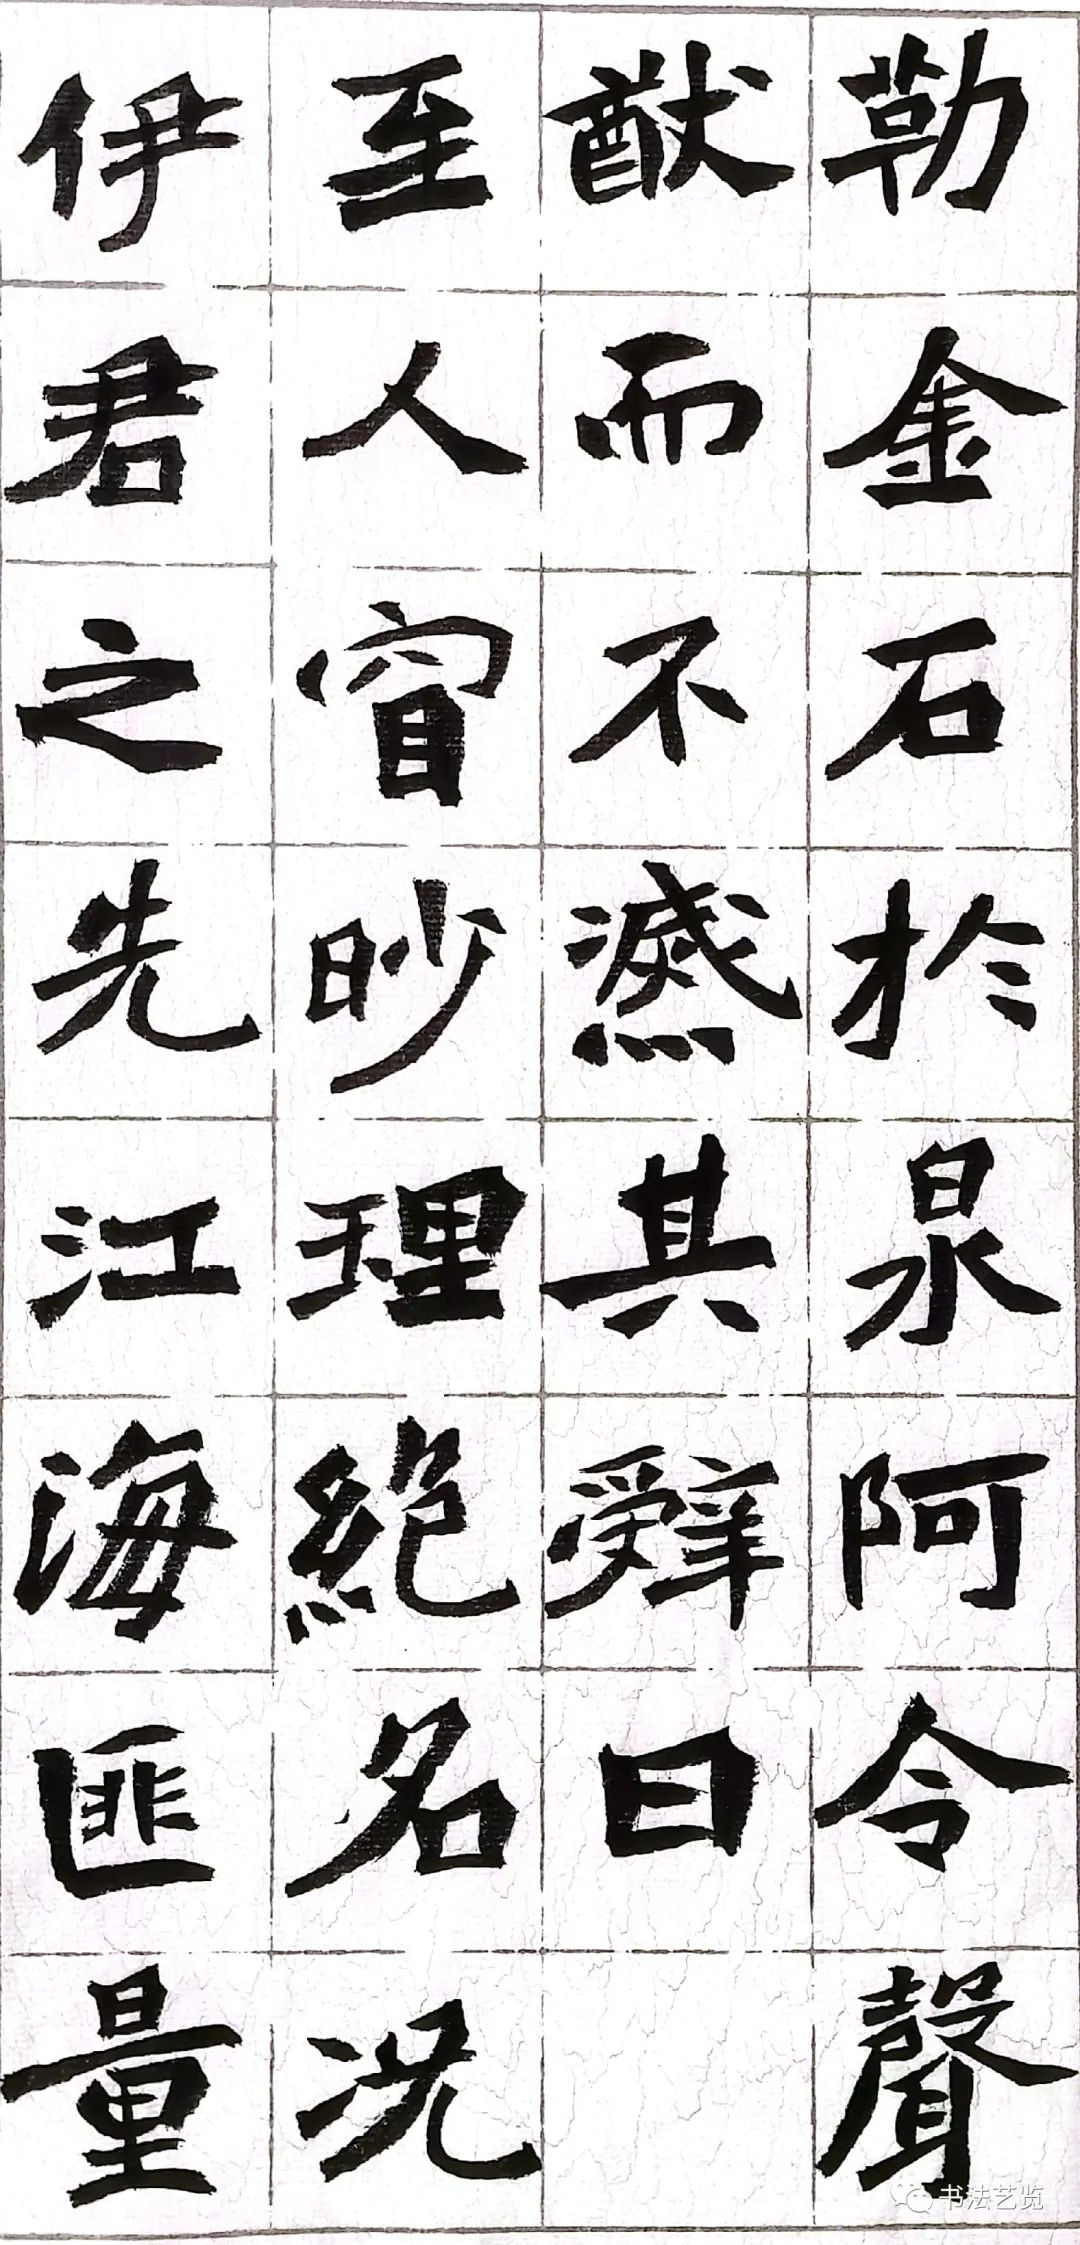 勒金石於泉阿令聲
猷而不滅其辤曰
至人窅眇理絶名況
伊君之先江海匪量
书法艺览